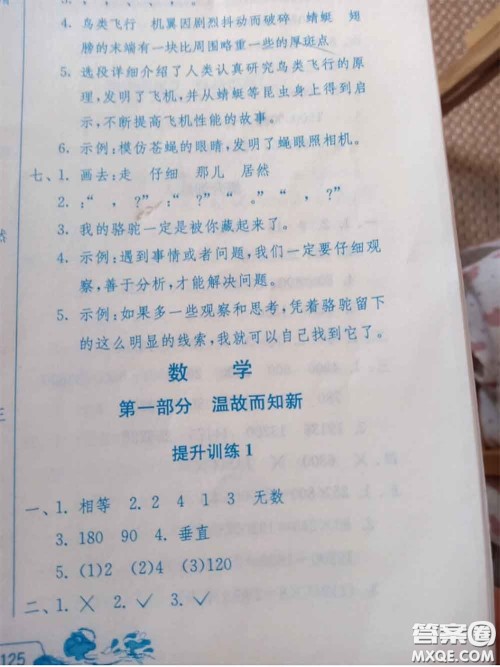 4. 鸟类飞行　机翼因剧烈抖动而破碎　蜻蜓　翅
膀的末端有一块比周围略重一些的厚斑点
5. 选段详细介绍了人类认真研究鸟类飞行的原
理,发明了飞机,并从蜻蜓等昆虫身上得到启
示,不断提高飞机性能的故事。
6. 示例:模仿苍蝇的眼睛,发明了蝇眼照相机。
七、1. 画去:走　仔细　那儿　居然
2. :“　，　?”　:“　?”　“　。”　“　，　?”
3. 我的骆驼一定是被你藏起来了。
4. 示例:遇到事情或者问题,我们一定要仔细观
察,善于分析,才能解决问题。
5. 示例:如果多一些观察和思考,凭着骆驼留下
的这么明显的线索,我就可以自己找到它了。
数　学
第一部分　温故而知新
提升训练 1
一、1. 相等　2. 2　4　1　3　无数
3. 180　90　4. 垂直
5. (1)2　(2)4　(3)120
二、1. ×　2. ✓　3. ✓
125
答案圈
MXQE.COM